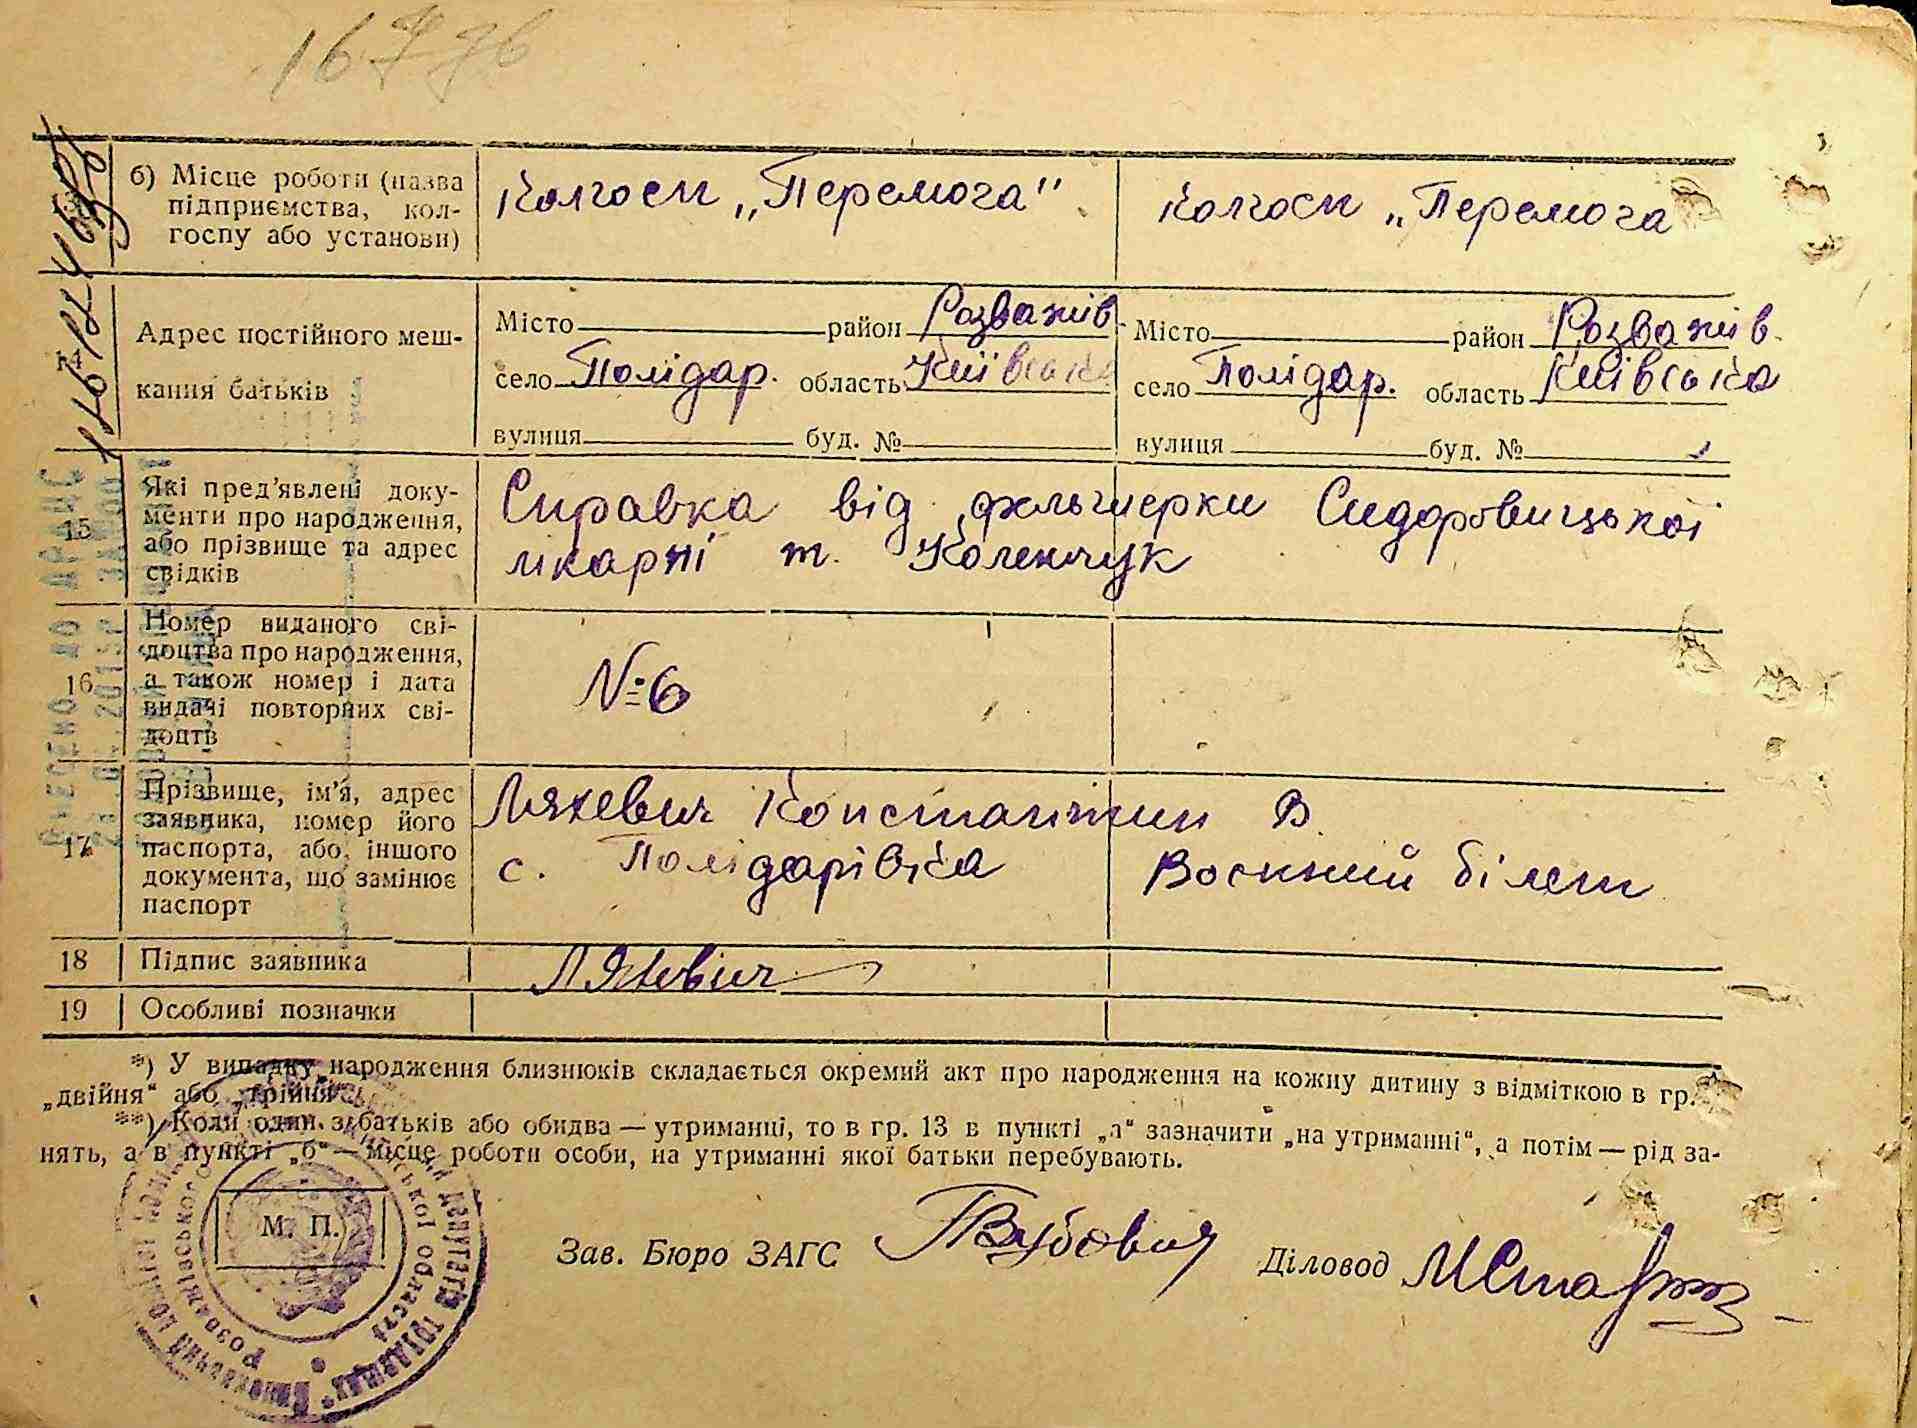 16776
б) Місце роботи (назва підприємства, колгоспу або установи)
Колгосп „Перемога"
Колгосп „Перемога
14
Адрес постійного мешкання батьків
Місто район Розважів
село Полідар. область Київська
вулиця буд. №
Місто район Розважів
село Полідар. область Київська
вулиця буд. №
15
Які пред'явлені документи про народження, або прізвище та адрес свідків
Справка від фельшерки Сидоровицької
лікарні т. Коленчук
16
Номер виданого свідоцтва про народження, а також номер і дата видачі повторних свідоцтв
№6
17
Прізвище, ім'я, адрес заявника, номер його паспорта, або іншого документа, що замінює паспорт
Ляхевич Константин В.
с. Полідарівка Воєнний білет
18 Підпис заявника
Ляхевич
19 Особливі позначки
*) У випадку народження близнюків складається окремий акт про народження на кожну дитину з відміткою в гр.
„двійня“ або „трійня“.
**) Коли один з батьків або обидва — утриманці, то в гр. 13 в пункті „а“ зазначити „на утриманні“, а потім — рід за-
нять, а в пункті „б“ — місце роботи особи, на утриманні якої батьки перебувають.
М. П.
Зав. Бюро ЗАГС
Діловод
депутатів трудящих
Розважівського
Київської області